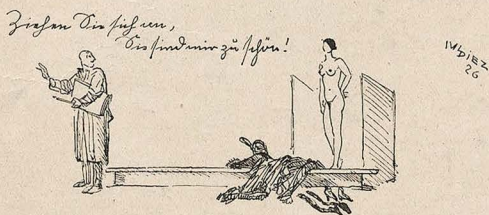 Ziehen Sie sich an,
Sie sind mir zu schön!
IVDIEZ
26